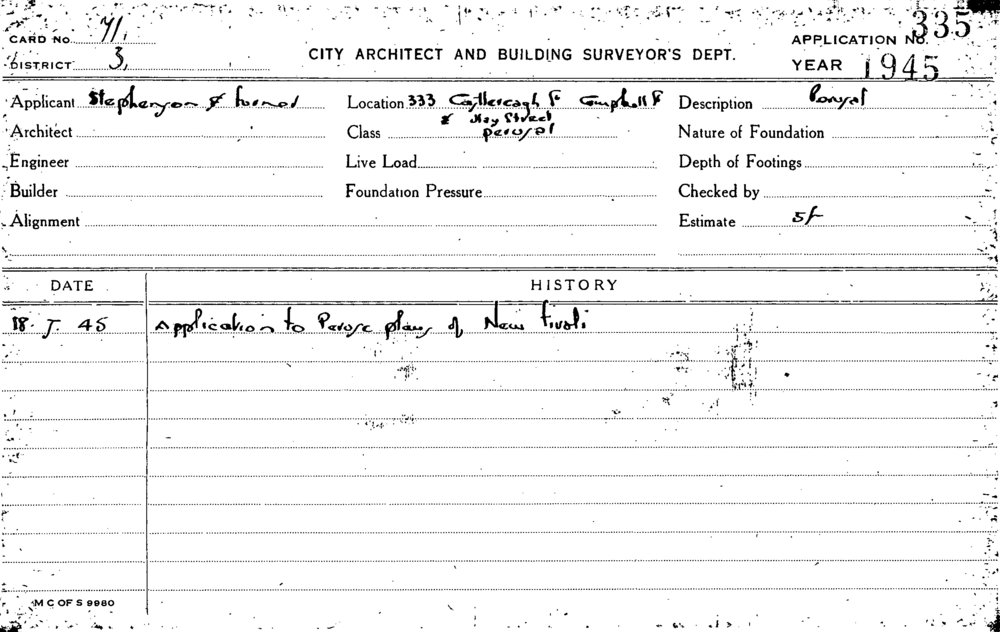 CARD No. 71.
APPLICATION No. 335
DISTRICT 3,
CITY ARCHITECT AND BUILDING SURVEYOR'S DEPT.
YEAR 1945
Applicant Stephenson & Turner
Location 333 Castlereagh St Campbell St
& Hay Street
Description Perusal
Architect
Class perusal
Nature of Foundation
Engineer
Live Load
Depth of Footings
Builder
Foundation Pressure
Checked by
Alignment
Estimate 5/-
DATE
HISTORY
18. 7. 45 Application to Peruse plans of New Tivoli
M C OF S 9980